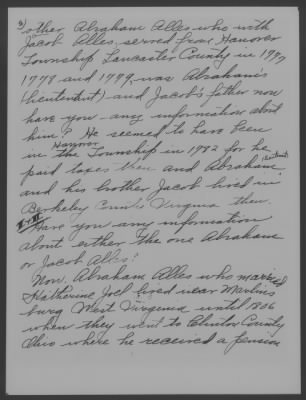 3)
other Abraham Alles who with
Jacob Alles, served from Hanover
Township Lancaster County in 1777
1778 and 1779 was Abraham's
(lieutentant) and Jacob's father now
have you any information about
him? He seemed to have been
in the Hanover Township in 1782 for he
paid taxes then and Abraham (lieutenant)
and his bother Jacob lived in
Berkeley County Virginia then.
Have you any information
about either the one Abraham
or Jacob Alles?
Now, Abraham Alles who married
Katherine Joel lived near Martins
burg West Virginia until 1806
when they went to Clinton County
Ohio where he received a pension